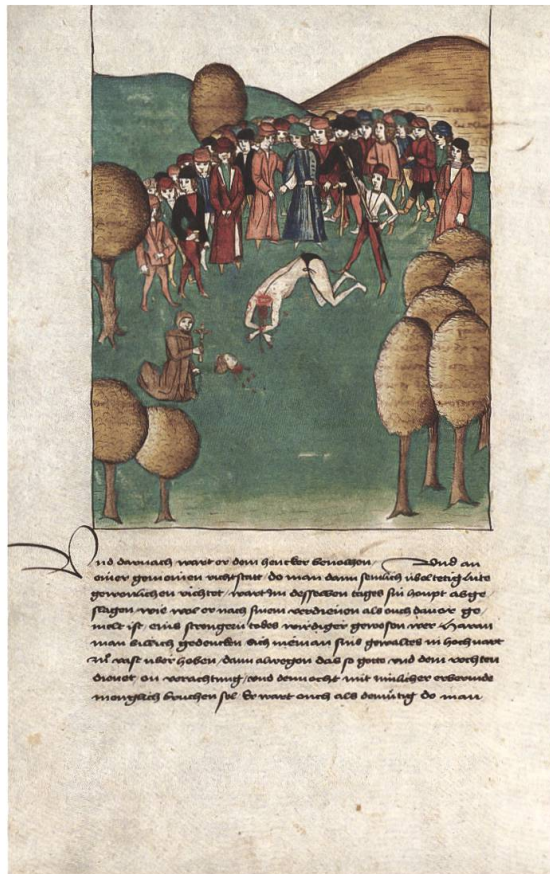 Und darnach wart er dem hencker bevolchen / Und an
einer gemeinen richtstatt / do man dann semlich übeltetig lüte
gewonlichen richtet / wart im desselben tages sin houpt abge
slagen / wie wol er nach sinem verdienen als ouch davor ge
melt ist / eins strengern todes wirdiger gewesen wer Daran
man billich gedencken sich nieman sins gewaltes in hochvart
zů vast überhoben / dann alwegen das so gotte und dem rechten
dienet on verachtung / und dennocht mit milticher erbermde
menglich bruchen sol Er wart ouch als demütig do man